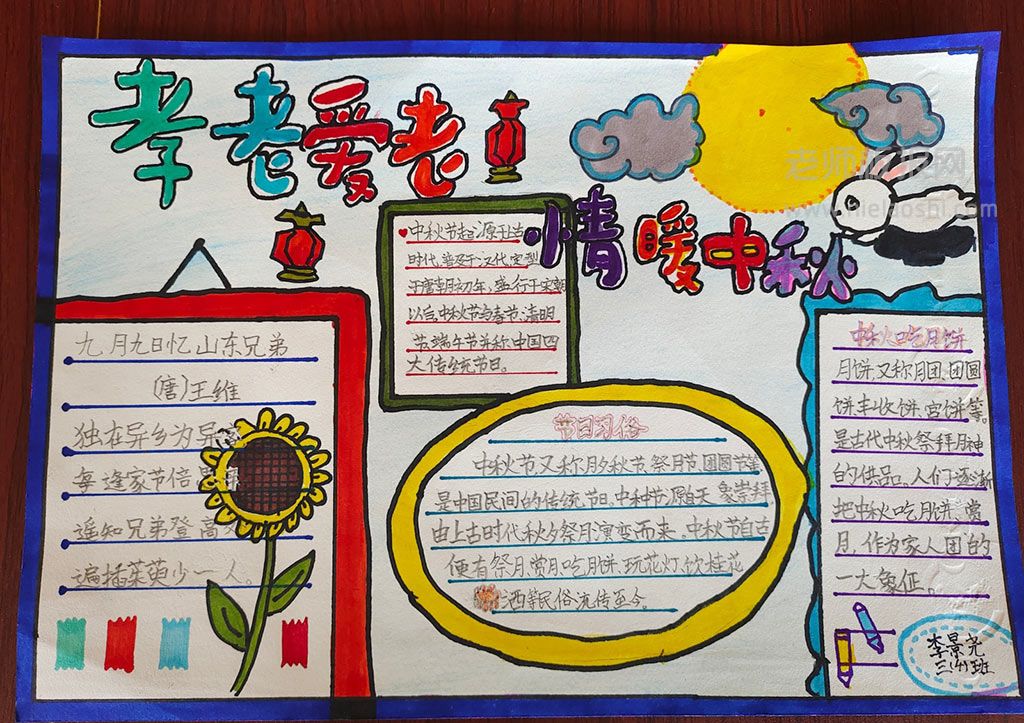 孝老爱老
情暖中秋
九月九日忆山东兄弟
(唐)王维
独在异乡为异
每逢家节倍思
遥知兄弟登高
遍插茱萸少一人。
中秋节起源于上古
时代,普及于汉代,定型
于唐朝初年,盛行于宋朝
以后,中秋节与春节、清明
节、端午节并称中国四
大传统节日。
节日习俗
中秋节又称月夕、秋节、祭月节、团圆节等
是中国民间的传统节日。中种节源自天象崇拜
由上古时代秋夕祭月演变而来。中秋节自古
便有祭月、赏月、吃月饼、玩花灯、饮桂花
酒等民俗,流传至今。
中秋吃月饼
月饼,又称月团、团圆
饼、丰收饼、宫饼等。
是古代中秋祭拜月神
的供品。人们逐渐
把中秋吃月饼、赏
月,作为家人团的
一大象征。
李景尧
三(4)班
老师板报网